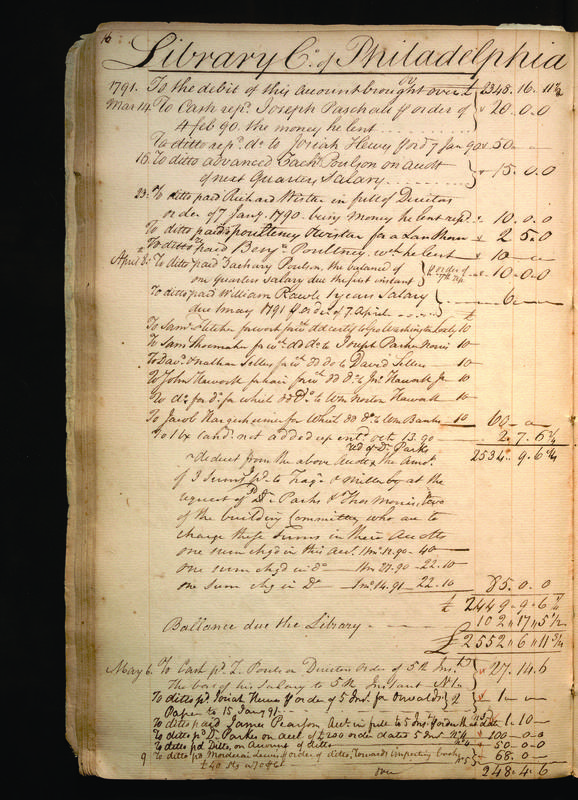 16
Library Co. of Philadelphia
1791. To the debit of this account brought over £ 2348. 16. 11½
Mar 14. To Cash repd. Joseph Paschall ⅌ order of
4 feb 90. the money he lent } 20. 0. 0
To ditto repd. do to Josiah Hewes ⅌ ord 7 Jan 90 50 —
16. To ditto advanced Zachy. Poulson on accott
of next Quarters Salary } 15. 0. 0
23. To ditto paid Richard Wister in full of Directors
order of 7 Jany. 1790. being money he lent repd. 10. 0. 0
To ditto paid poultney & wister for a Lanthorn 2 5. 0
To ditto paid Benjn. Poultney, wch. he lent 10 — —
April 8: To ditto paid Zachary Poulson, the balance of
one quarters Salary due the first instant } ⅌ order of 7th 10. 0. 0
To ditto paid William Rawle 1 years Salary
due may 1791 ⅌ order of 7. April } 6 —
To Saml. Fletcher for work for wh. dd certife. to Geo Washington 10 —
To Saml Shoemaker for wh. dd do to Joseph Parker Norris 10 —
To Davd. & nathan Sellers for wh dd do to David Sellers 10 —
To John Hawork for hair for wh dd do. to Jno. Hawork Jr 10 —
To do. for do. for which dd do. to Wm Norton Hawork 10 —
To Jacob for which dd do. to Wm Banks 10 60 — —
To 16 Cand. not added up octr. 13. 90 2. 7. 6¼
2534. 9. 6¾
Deduct from the above Accott the Amot.
of 3 Sums pd. to & Willerby at the
request of Dr Parks & Thos Morris, two
of the building Committee, who are to
charge these Sums in their Accotts
one sum chgd in this acct. 12. 90 – 40 —
one sum chgd in do 27. 90 – 22. 10
one Sum chg in Do 14. 91 – 22. 10 85. 0. 0
£ 2449 „ 9 „ 6
Ballance due the Library 102 „ 17 „ 5½
£ 2552 „ 6 „ 11¾
May 6. To Cash pd. Z. Poulson Directors order of 5th Inst.
The bal of his Salary to 5th Instant No 1 } 27. 14. 6
To ditto pd. Josiah Hewes ⅌ order of 5 Inst for Oswalds
Paper to 15 Jany 91 } 1 — —
To ditto paid James Pearson Acct. in full to 5 Inst 1. 10 —
To ditto pd D. Parkes on acct of £200 order dated 5 Inst No 4 100 — 0 — 0
To ditto pd ditto, on Account of ditto No 4 50 — 0 — 0
9 To ditto pd Mordecai Lewis ⅌ order of ditto, Towards importing books No 5 68. 0 —
£40 Stg
over 248. 4. 6